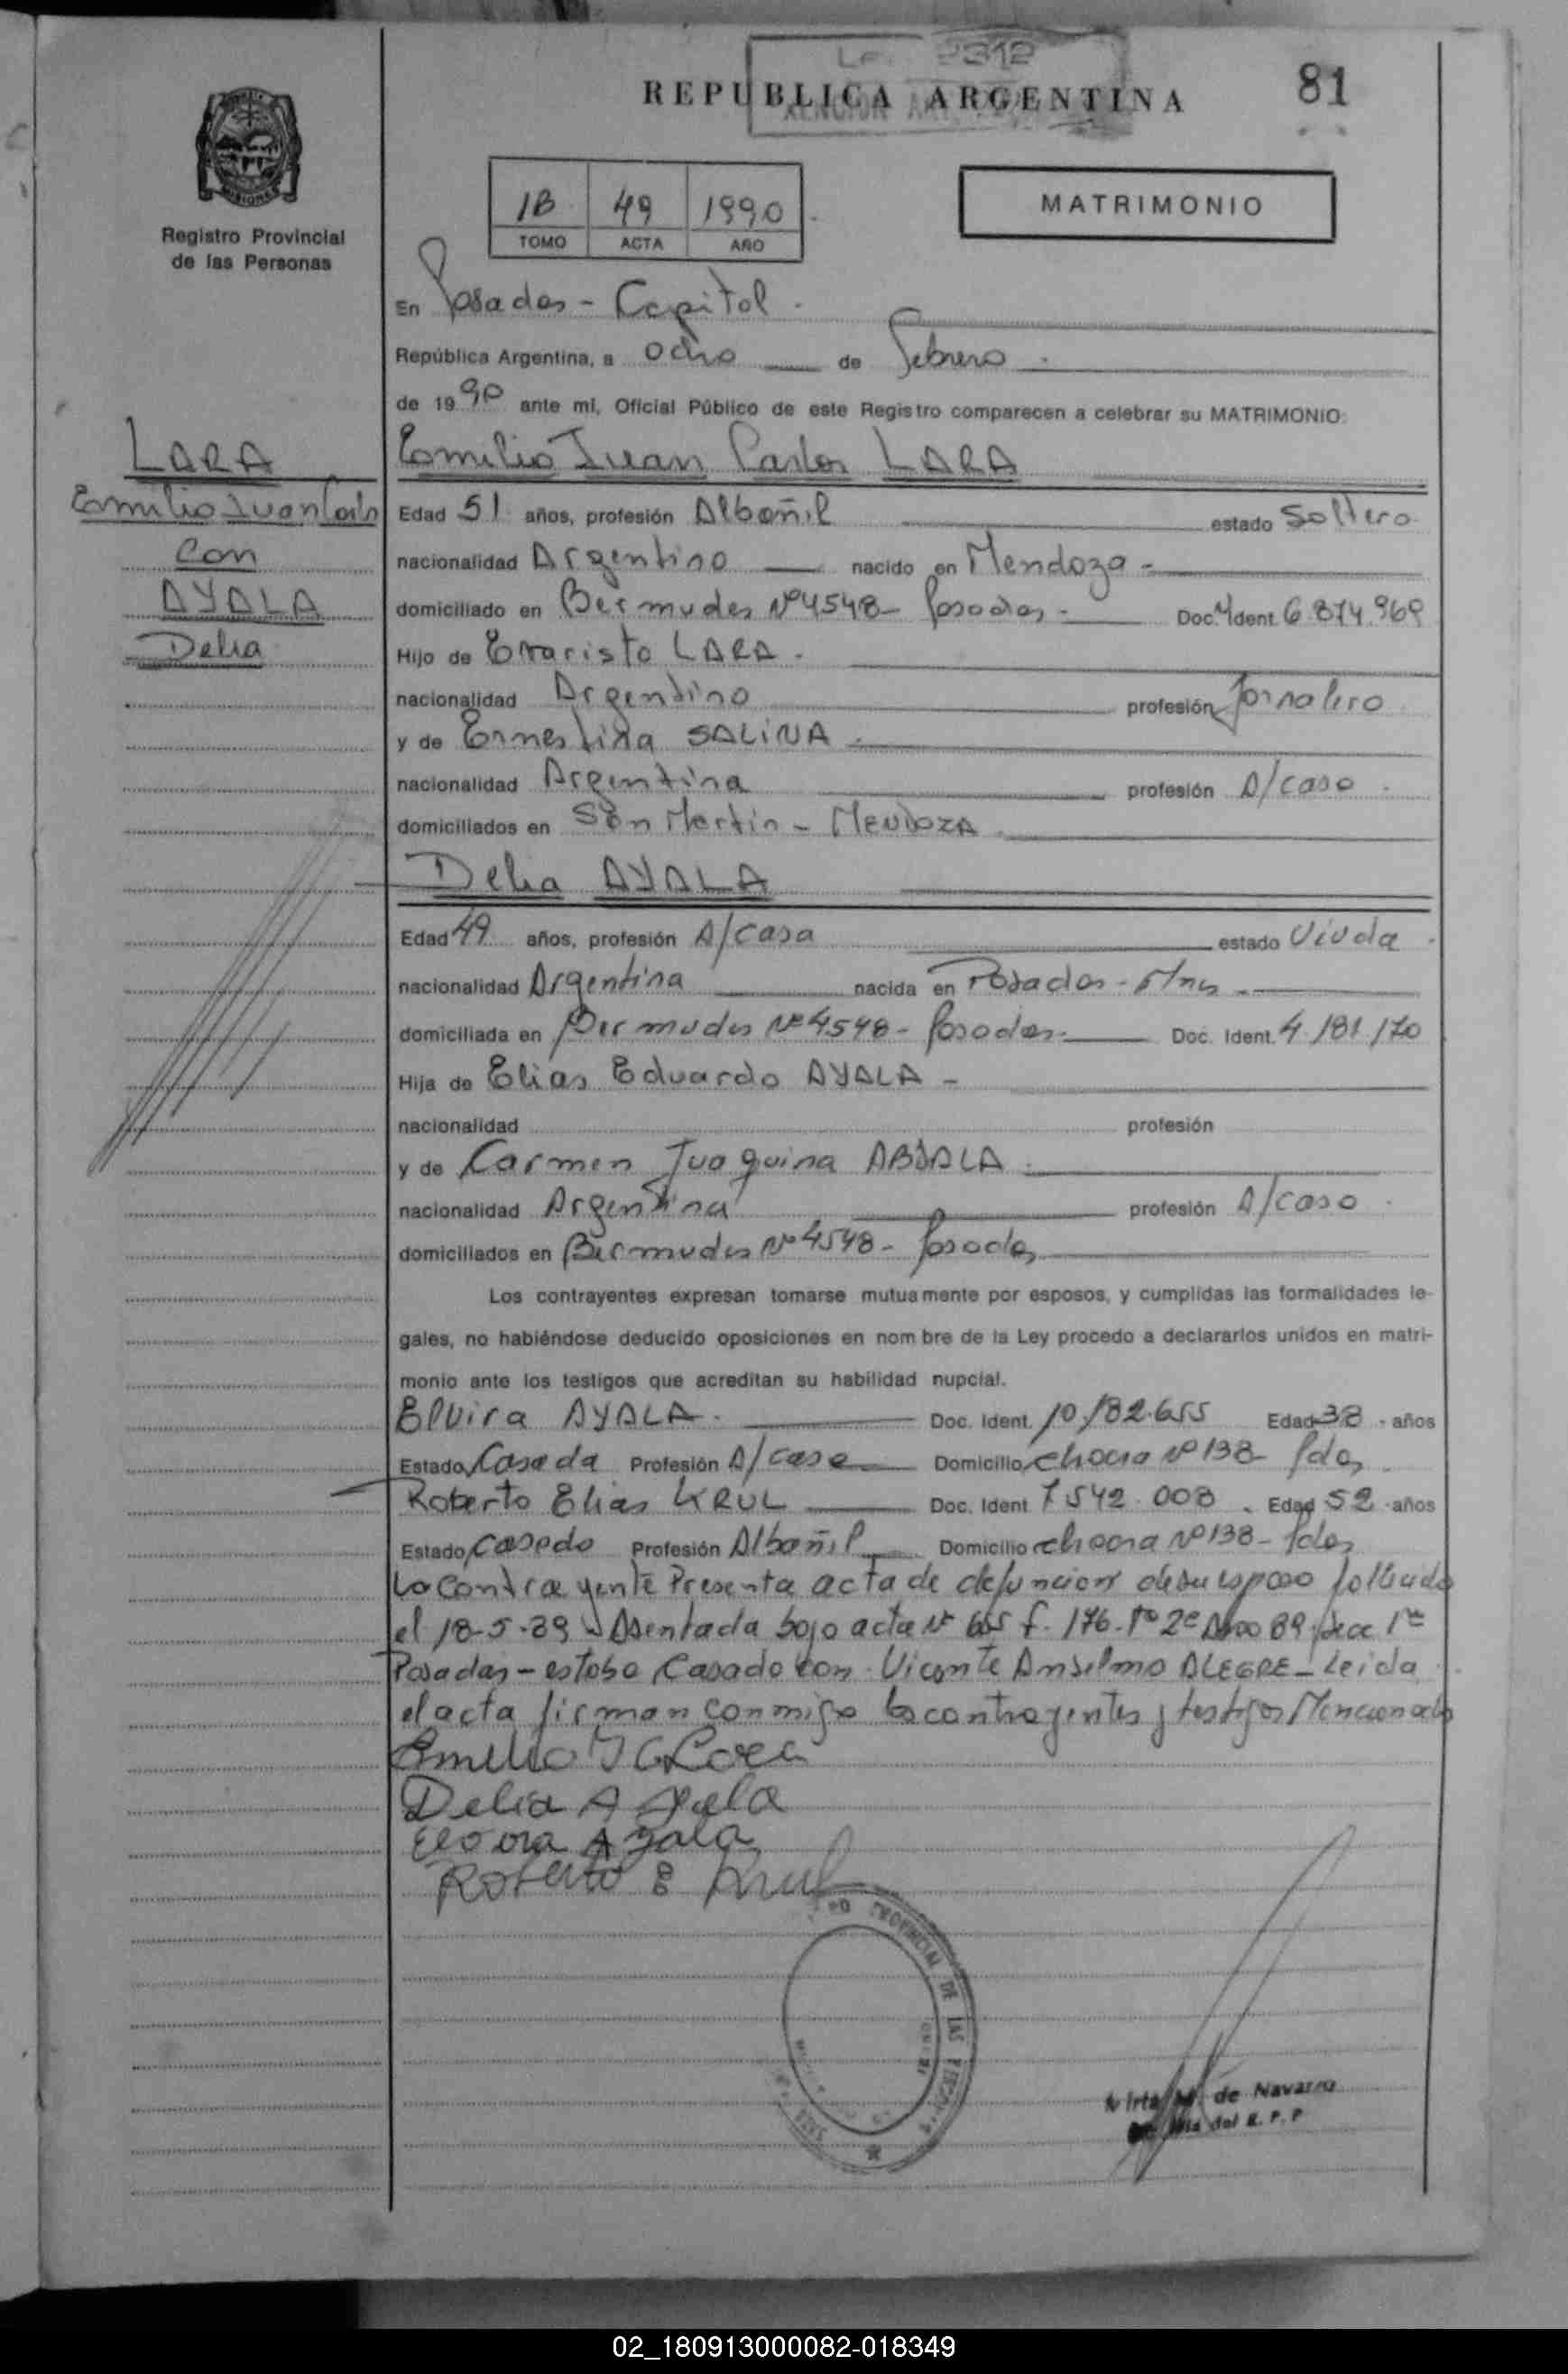 LF. 2312
REPUBLICA ARGENTINA
81
MISIONES
Registro Provincial
de las Personas
1B 49 1990
TOMO ACTA AÑO
MATRIMONIO
En Posadas - Capital
República Argentina, a ocho de Febrero
de 1990 ante mi, Oficial Público de este Registro comparecen a celebrar su MATRIMONIO:
LARA
Emilio Juan Carlos
Con
AYALA
Delia
Emilio Juan Carlos LARA
Edad 51 años, profesión Albañil estado Soltero
nacionalidad Argentino nacido en Mendoza -
domiciliado en Bermudes Nº 4548 - Posadas - Doc. Ident. 6.874.969
Hijo de Evaristo LARA.
nacionalidad Argentino profesión Jornalero
y de Ernestina SALINA
nacionalidad Argentina profesión A/casa
domiciliados en San Martin - MENDOZA
Delia AYALA
Edad 49 años, profesión A/casa estado Viuda
nacionalidad Argentina nacida en Posadas - Mnes
domiciliada en Bermudes Nº 4548 - Posadas - Doc. Ident. 4.181.170
Hija de Elias Eduardo AYALA -
nacionalidad profesión
y de Carmen Juaquina
nacionalidad Argentina profesión A/casa
domiciliados en Bermudes Nº 4548 - Posadas
Los contrayentes expresan tomarse mutuamente por esposos, y cumplidas las formalidades le-
gales, no habiéndose deducido oposiciones en nombre de la Ley procedo a declararlos unidos en matri-
monio ante los testigos que acreditan su habilidad nupcial.
Elvira AYALA. Doc. Ident. 10.182.655 Edad 38 años
Estado Casada Profesión A/casa Domicilio chacra Nº 138 - Pdas
Roberto Elias KRUL Doc. Ident. 7.542.008 Edad 52 años
Estado Casado Profesión Albañil Domicilio chacra Nº 138 - Pdas
La Contrayente Presenta acta de defuncion de su esposo fallecido
el 18-5-89 Asentada bajo acta Nº 605 f. 176. Tº 2º Año 89. Secc 1ª
Posadas - estaba Casado con Vicente Anselmo ALEGRE - Leida
el acta firman conmigo los contrayentes y testigos Mencionados
Emilio J C Lara
Delia A Ayala
Elvira Ayala
Roberto E Krul
PROVINCIAL DE LAS
Mirta de Navarro
del R. P. P
02_180913000082-018349